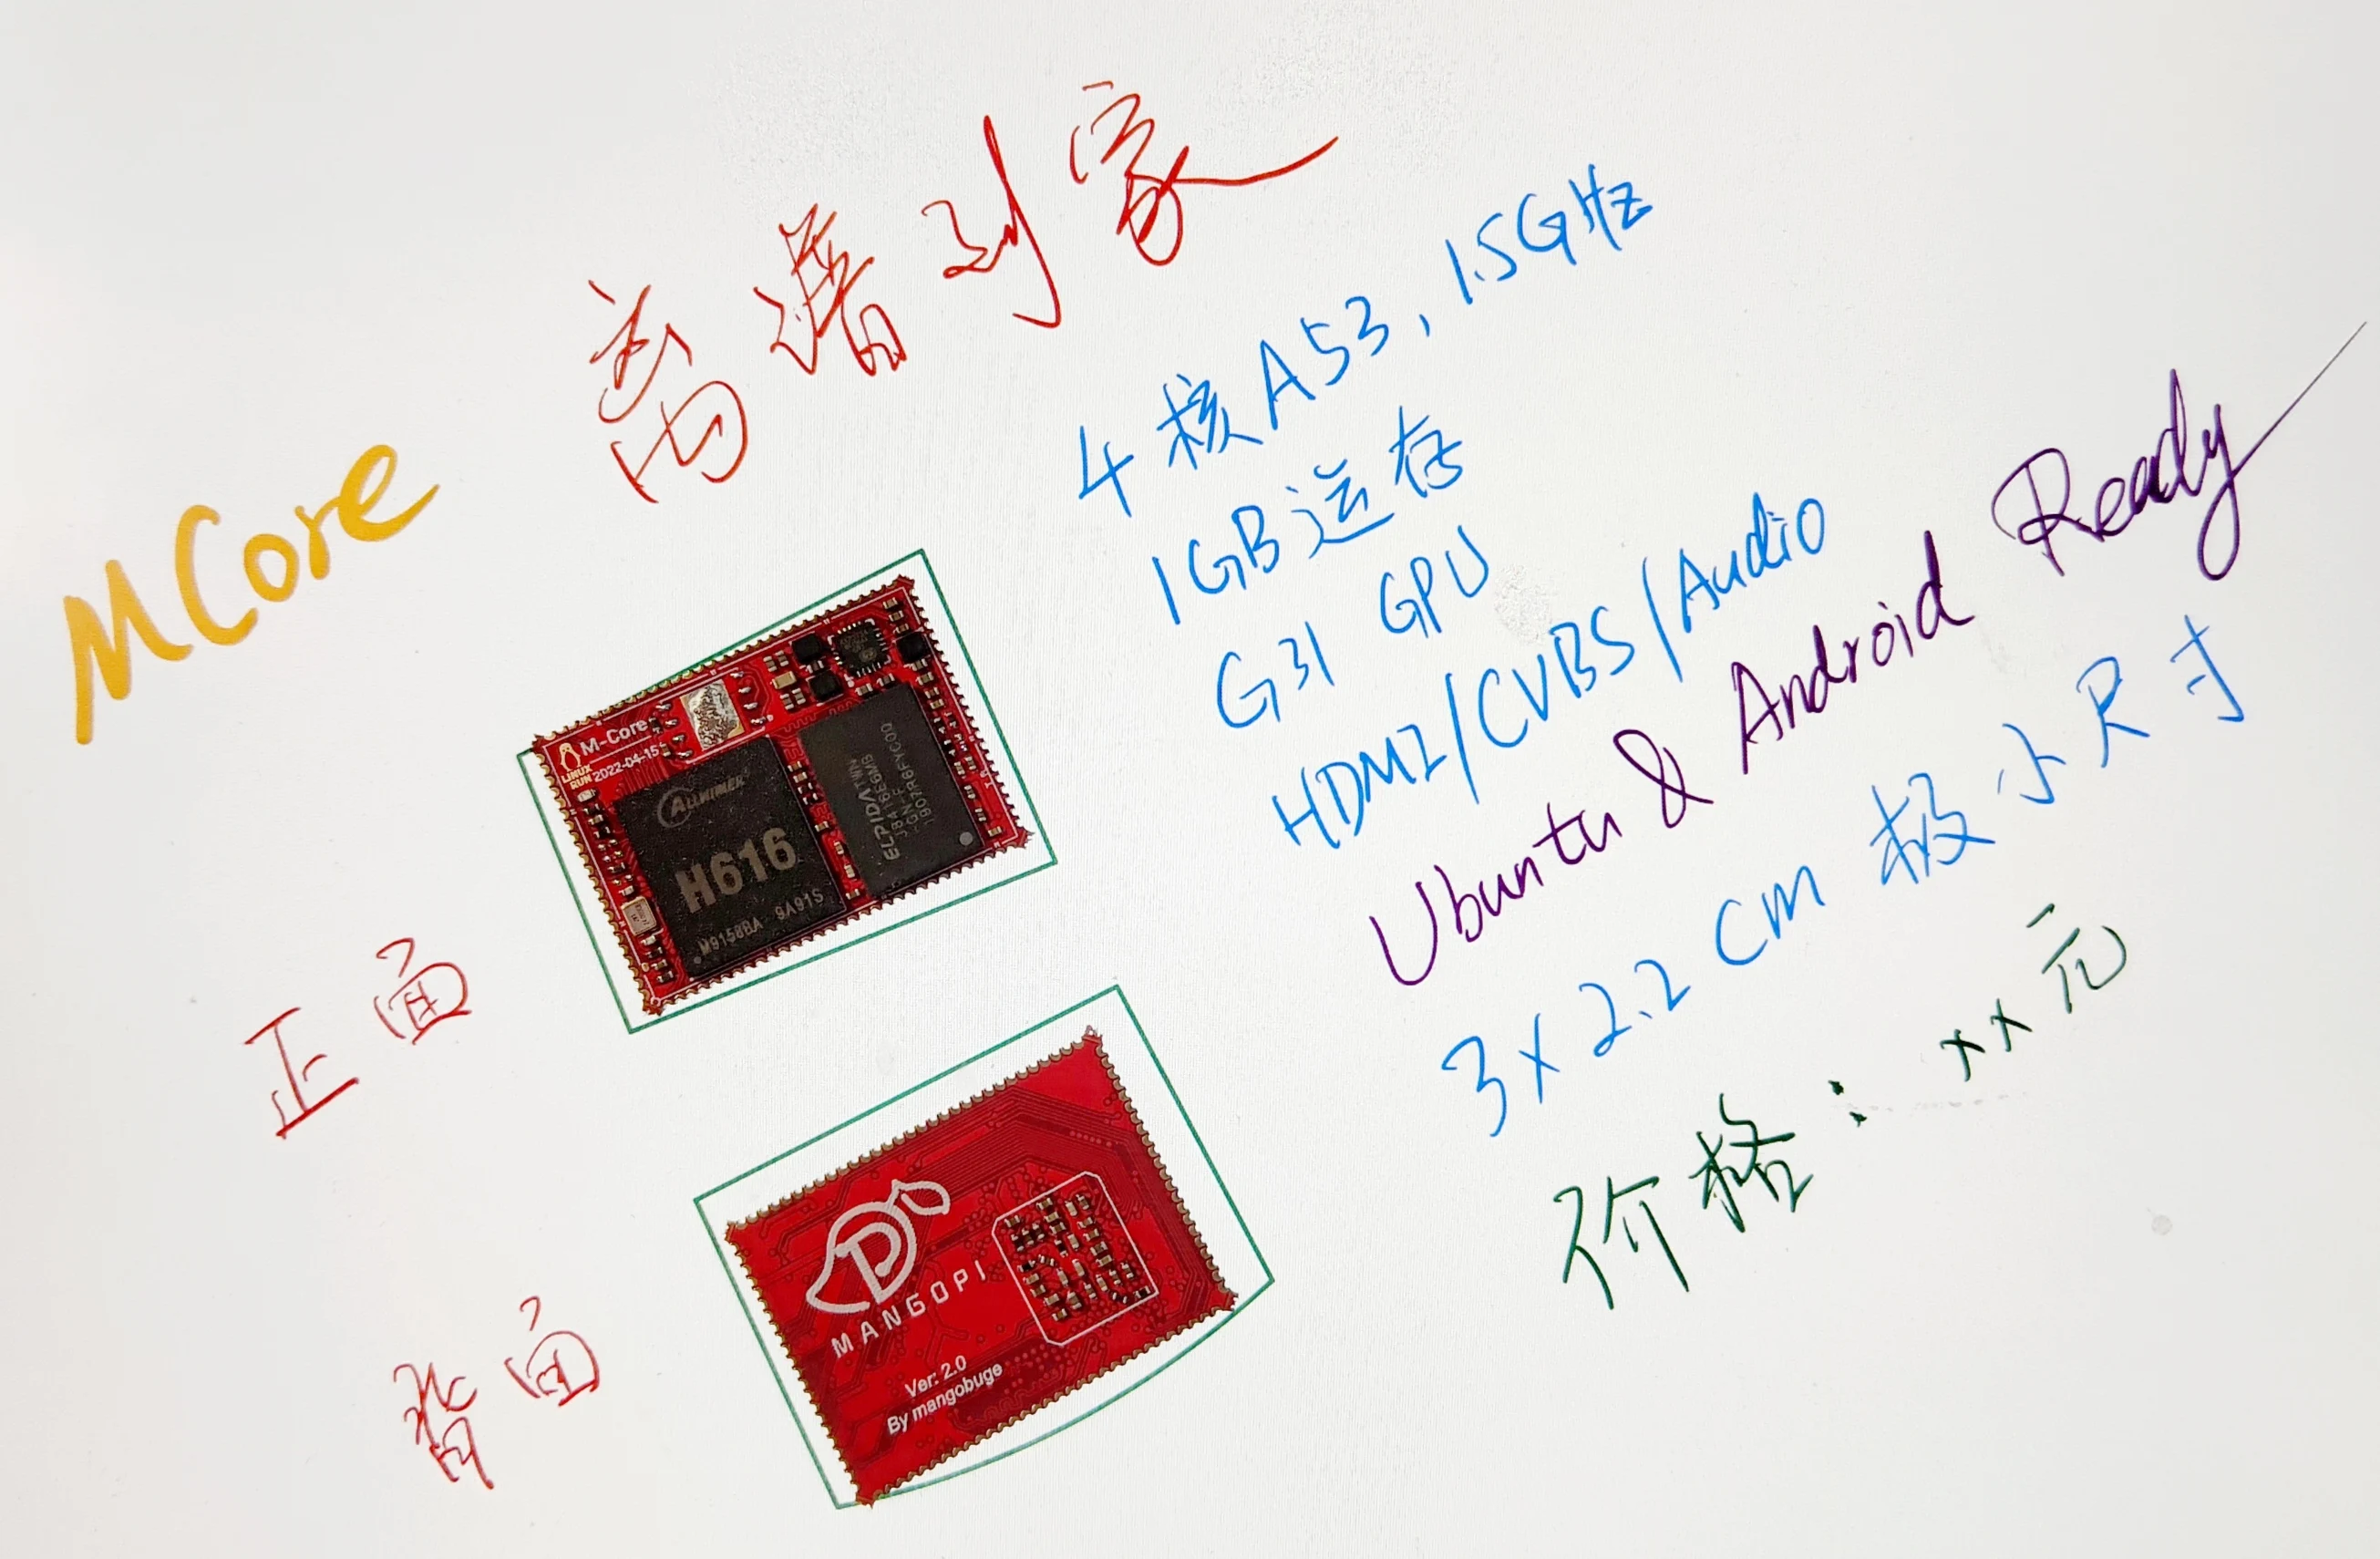 离谱到家
MCore
4核A53, 1.5GHz
1GB运存
G31 GPU
HDMI/CVBS/Audio
Ubuntu & Android Ready
3x2.2 cm 极小尺寸
价格: xx元
正面
M-Core
2022-04-15
LINUX
RUN
ALLWINNER
H616
M9158BA 9A91S
ELPIDA
背面
MANGOPI
Ver: 2.0
By mangobuge